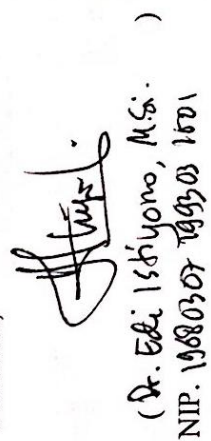 (Dr. Edi Istiyono, M.Si. )
NIP. 19680307 199303 1001